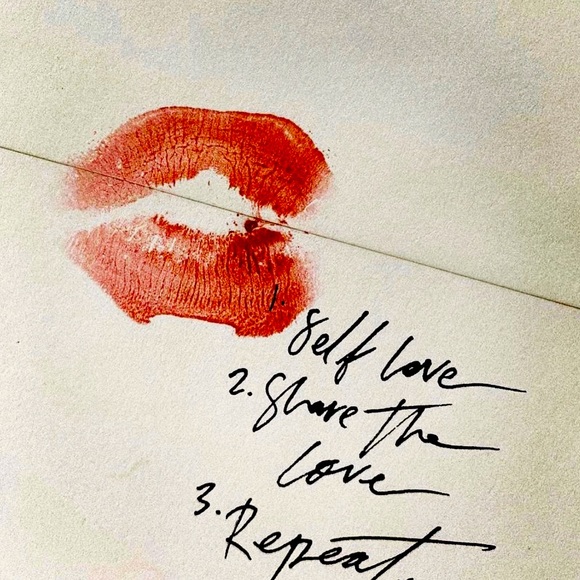 1. Self love
2. Share the
love
3. Repeat.